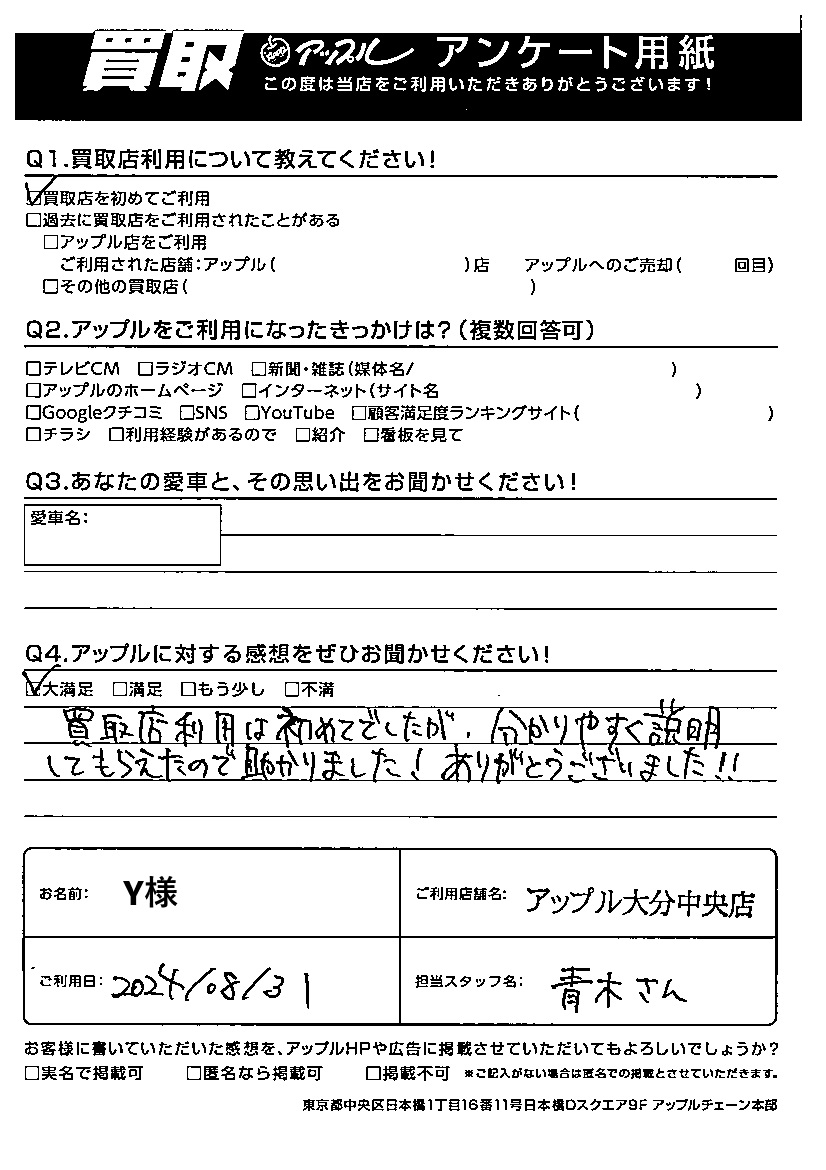 買取 アップル アンケート用紙
この度は当店をご利用いただきありがとうございます!
Q1.買取店利用について教えてください!
☑買取店を初めてご利用
□過去に買取店をご利用されたことがある
□アップル店をご利用
ご利用された店舗:アップル( )店 アップルへのご売却( 回目)
□その他の買取店( )
Q2.アップルをご利用になったきっかけは?(複数回答可)
□テレビCM □ラジオCM □新聞・雑誌(媒体名/ )
□アップルのホームページ □インターネット(サイト名 )
□Googleクチコミ □SNS □YouTube □顧客満足度ランキングサイト( )
□チラシ □利用経験があるので □紹介 □看板を見て
Q3.あなたの愛車と、その思い出をお聞かせください!
愛車名:
Q4.アップルに対する感想をぜひお聞かせください!
☑大満足 □満足 □もう少し □不満
買取店利用は初めてでしたが、分かりやすく説明
してもらえたので助かりました!ありがとうございました!!
お名前: Y様 ご利用店舗名: アップル大分中央店
ご利用日: 2024/08/31 担当スタッフ名: 青木さん
お客様に書いていただいた感想を、アップルHPや広告に掲載させていただいてもよろしいでしょうか?
□実名で掲載可 □匿名なら掲載可 □掲載不可 ※ご記入がない場合は匿名での掲載とさせていただきます。
東京都中央区日本橋1丁目16番11号日本橋Dスクエア9F アップルチェーン本部